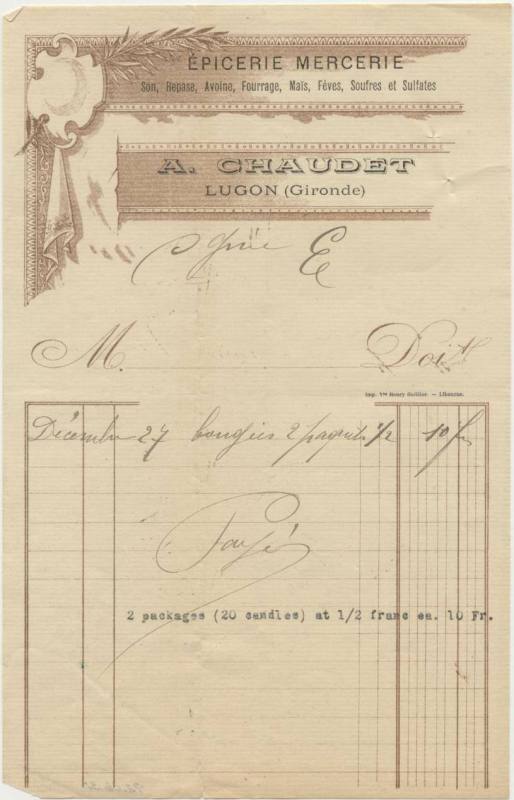 ÉPICERIE MERCERIE
Son, Repase, Avoine, Fourrage, Maïs, Fèves, Soufres et Sulfates
A. CHAUDET
LUGON (Gironde)
E
M. Doit
Imp. Vve Henry Guillier. — Libourne.
Décembre 27 bougies 2 paquets 1/2 10 fr
Payé
2 packages (20 candles) at 1/2 franc ea. 10 Fr.